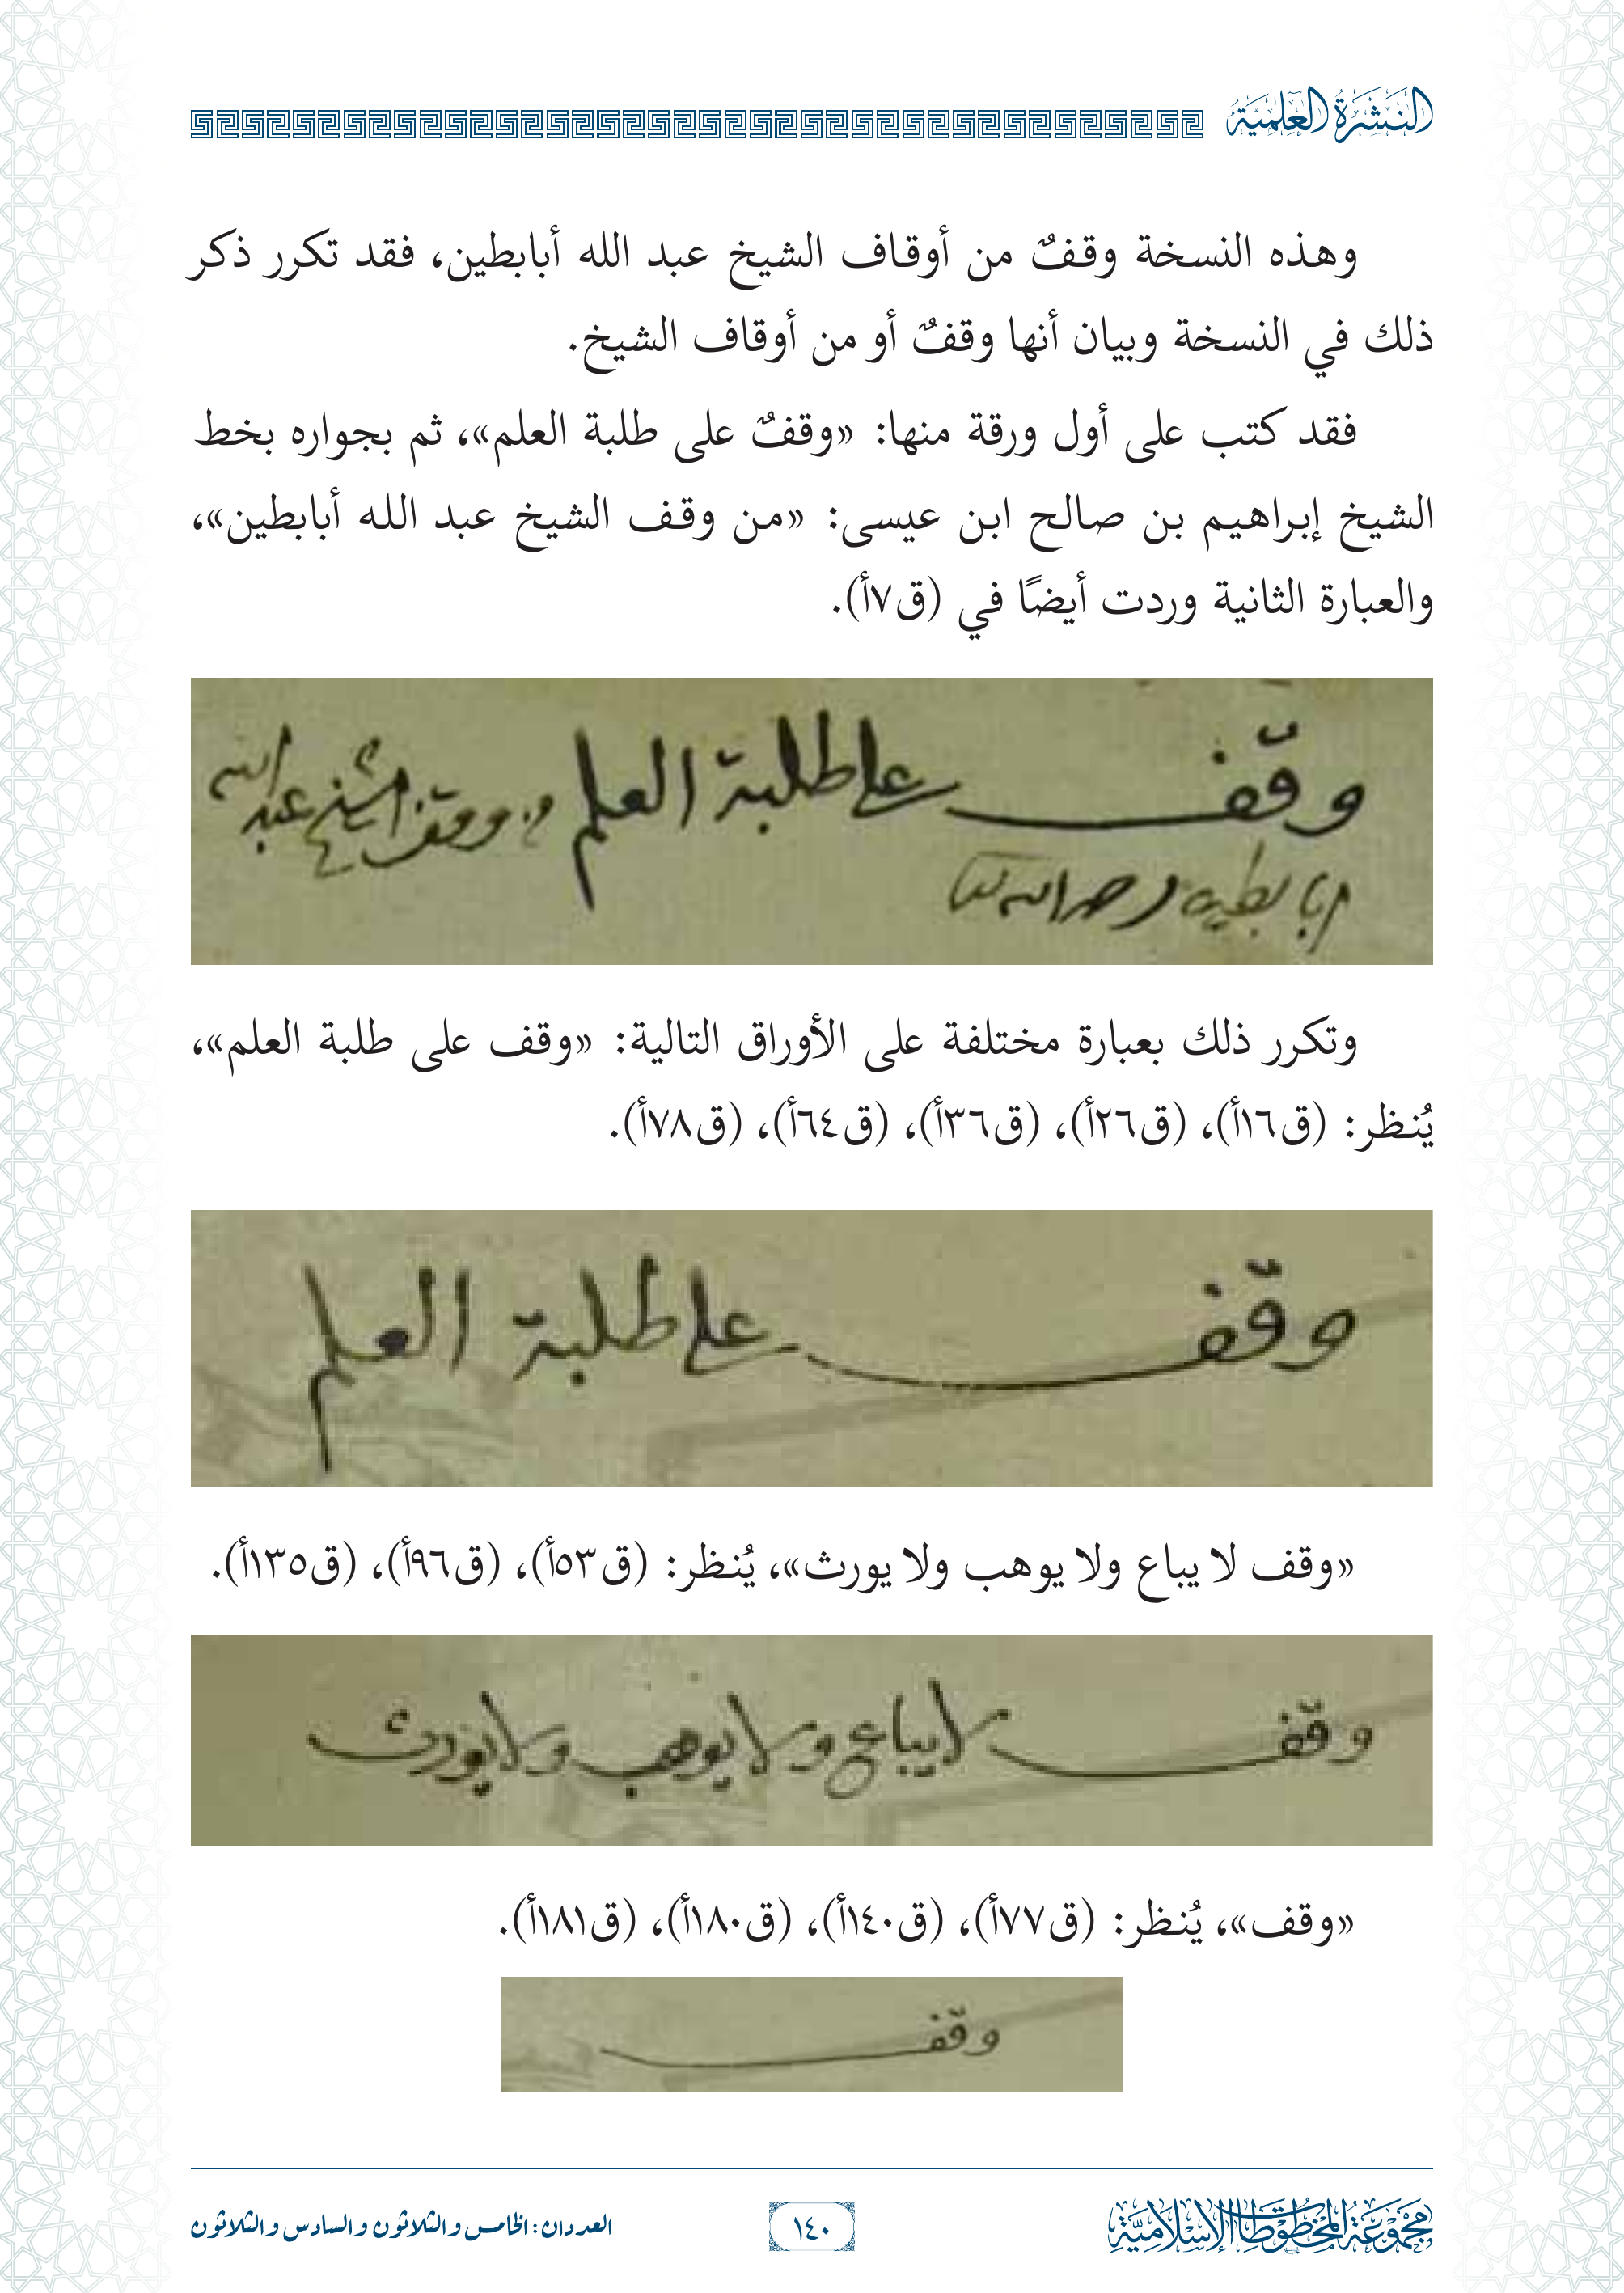 النشرة العلمية
وهذه النسخة وقفٌ من أوقاف الشيخ عبد الله أبابطين، فقد تكرر ذكر
ذلك في النسخة وبيان أنها وقفٌ أو من أوقاف الشيخ.
فقد كتب على أول ورقة منها: «وقفٌ على طلبة العلم»، ثم بجواره بخط
الشيخ إبراهيم بن صالح ابن عيسى: «من وقف الشيخ عبد الله أبابطين»،
والعبارة الثانية وردت أيضًا في (ق٧أ).
وقف على طلبة العلم من وقف الشيخ عبد الله
ابابطين رحمه الله تعالى
وتكرر ذلك بعبارة مختلفة على الأوراق التالية: «وقف على طلبة العلم»،
يُنظر: (ق١٦أ)، (ق٢٦أ)، (ق٣٦أ)، (ق٦٤أ)، (ق٧٨أ).
وقف على طلبة العلم
«وقف لا يباع ولا يوهب ولا يورث»، يُنظر: (ق٥٣أ)، (ق٩٦أ)، (ق١٣٥أ).
وقف لا يباع ولا يوهب ولا يورث
«وقف»، يُنظر: (ق٧٧أ)، (ق١٤٠أ)، (ق١٨٠أ)، (ق١٨١أ).
وقف
مجموعة المخطوطات الإسلامية
١٤٠
العددان: الخامس والثلاثون والسادس والثلاثون